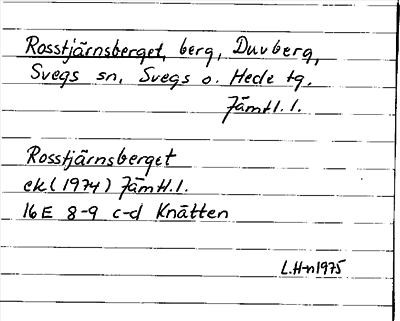 Rosstjärnsberget, berg, Duvberg,
Svegs sn, Svegs o. Hede tg.
Jämtl. l.
Rosstjärnsberget
ek. (1974) Jämtl. l.
16E 8-9 c-d Knätten
L.H-n 1975